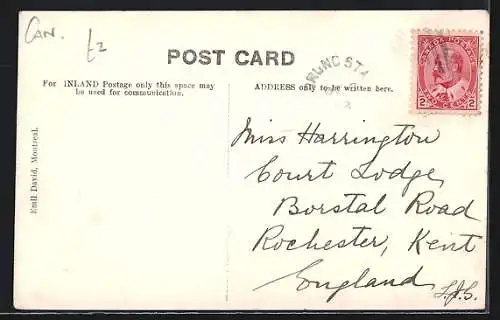 Can.
£2
POST CARD
For INLAND Postage only this space may
be used for communication.
ADDRESS only to be written here.
CANADA POSTAGE
2 TWO CENTS 2
Emil David, Montreal.
Miss Harrington
Court Lodge
Borstal Road
Rochester, Kent
England